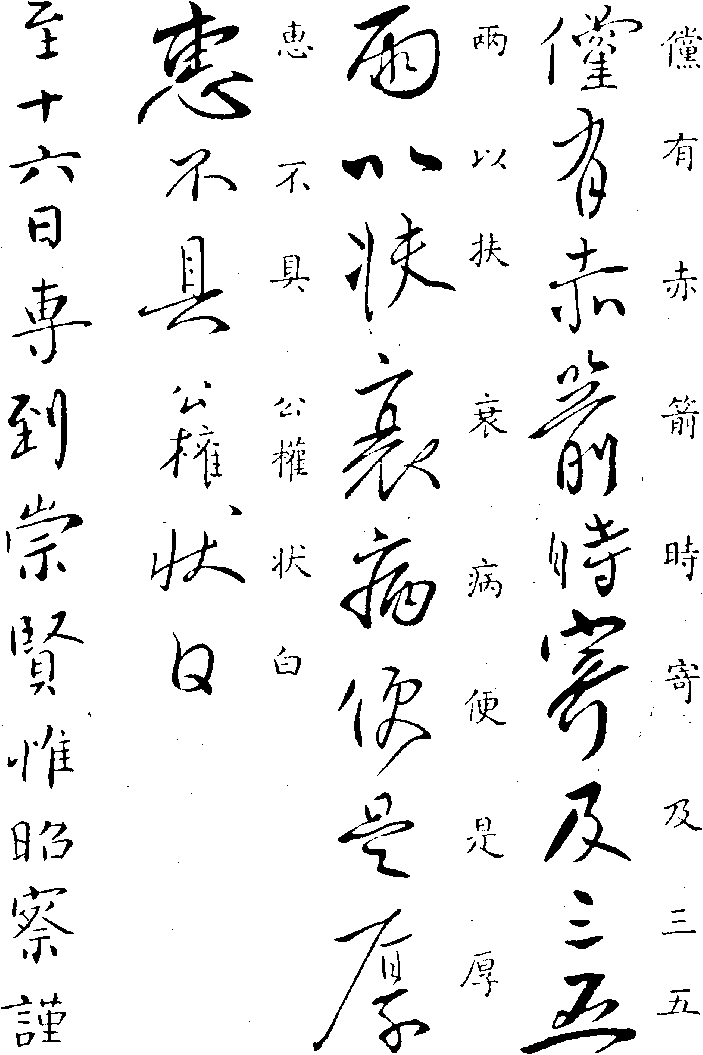 儻有赤箭時寄及三五
儻有赤箭時寄及三五
兩以扶衰病便是厚
兩以扶衰病便是厚
恵不具公權状白
恵不具公權状白
至十六日専到崇賢惟昭察謹